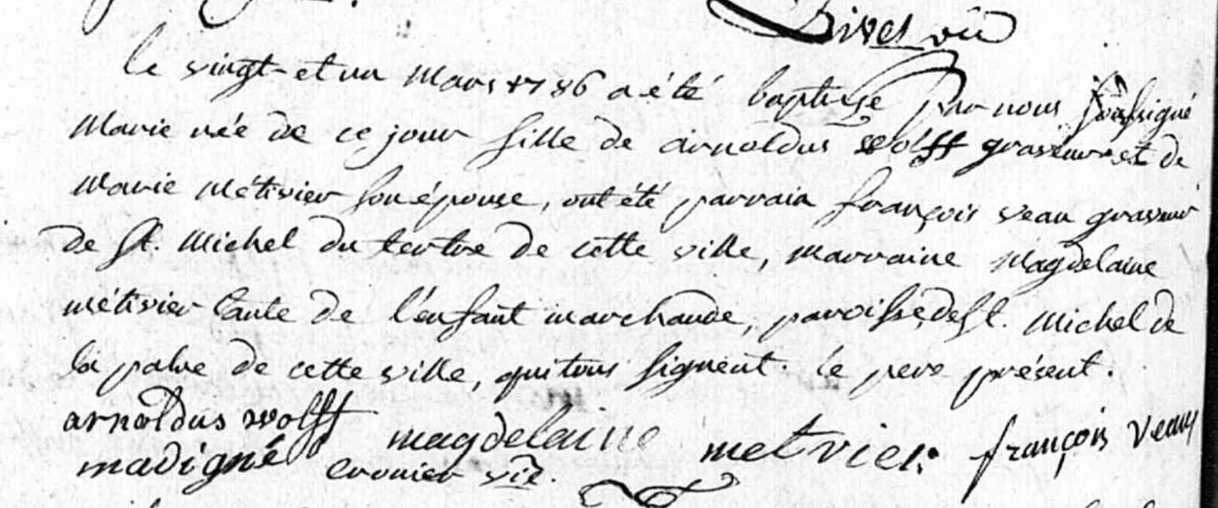 vic
le vingt et un Mars 1786 a été baptisée par nous soussigné
Marie née de ce jour fille de arnoldus Wolff graveur et de
Marie Métivier son épouse, ont été parrain françois veau graveur
de St. Michel du tertre de cette ville, marraine Magdelaine
métivier tante de l'enfant marchande, paroisse de St. Michel de
la palue de cette ville, qui tous signent. le pere présent.
arnoldus wolff magdelaine metvier françois veau
madigné vic.